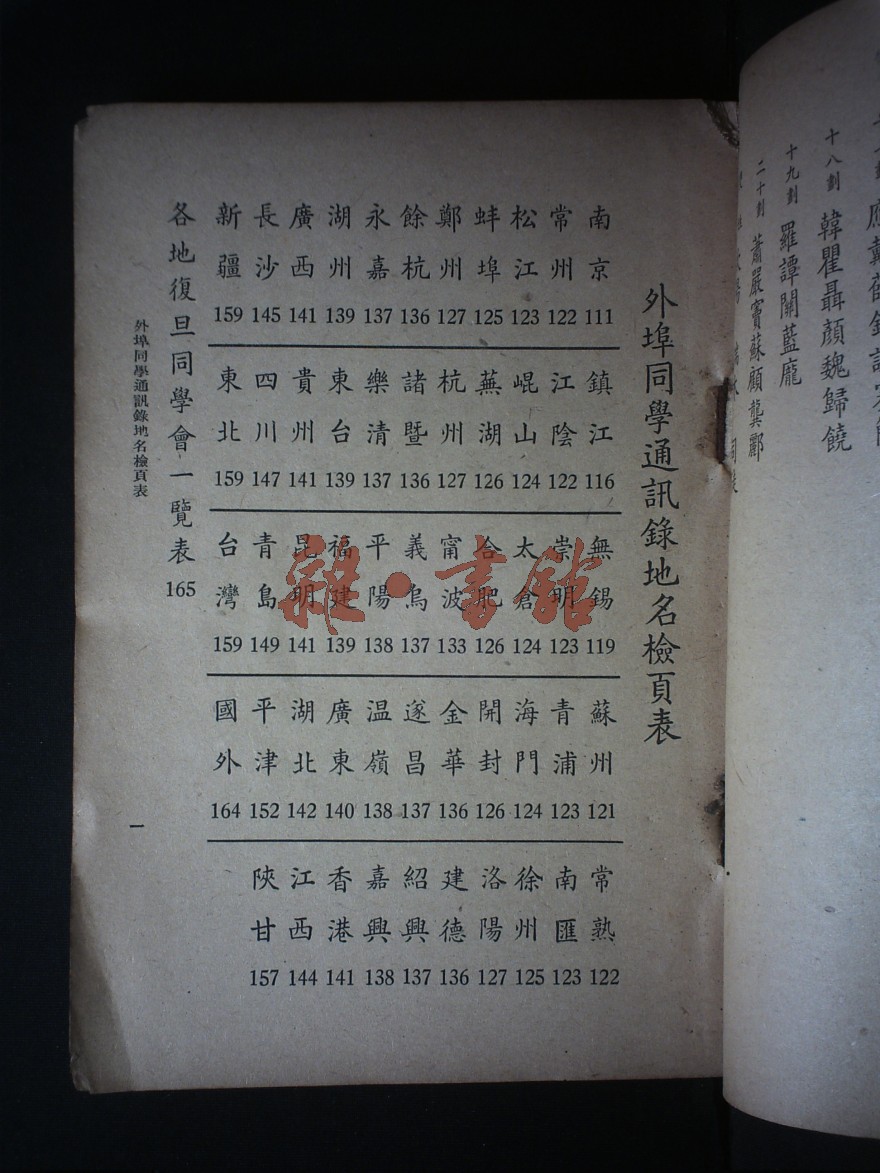 外埠同學通訊錄地名檢頁表
南京 111
鎮江 116
無錫 119
蘇州 121
常熟 122
常州 122
江陰 122
崇明 123
青浦 123
南匯 123
松江 123
崐山 124
太倉 124
海門 124
徐州 125
蚌埠 125
蕪湖 126
合肥 126
開封 126
洛陽 127
鄭州 127
杭州 127
甯波 133
金華 136
建德 136
餘杭 136
諸暨 136
義烏 137
遂昌 137
紹興 137
永嘉 137
樂清 137
平陽 138
温嶺 138
嘉興 138
湖州 139
東台 139
福建 139
廣東 140
香港 141
廣西 141
貴州 141
昆明 141
湖北 142
江西 144
長沙 145
四川 147
青島 149
平津 152
陝甘 157
新疆 159
東北 159
台灣 159
國外 164
各地復旦同學會一覽表 165
外埠同學通訊錄地名檢頁表
一
十八劃 韓瞿聶顏魏歸饒
十九劃 羅譚關藍龐
二十劃 蕭嚴竇蘇顧龔酈
雜·書館